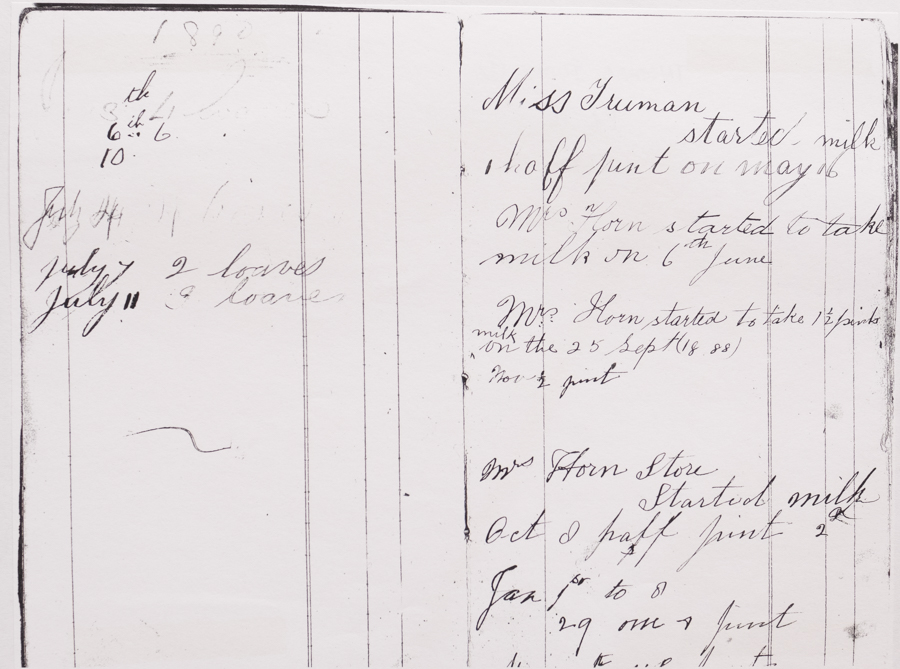 1890
th
6th 6
10
July 4
July 7 2 loaves
July 11 loaves
Miss Truman
started milk
1 haff pint on may 16
Mrs Horn started to take
milk on 6th June
Mrs. Horn started to take 1½ pints
milk
on the 25 Sept (1888)
Nov ½ pint
Mrs Horn Store
Started milk
Oct 8 haff pint 2d
Jan 1st to 8
29 one pint